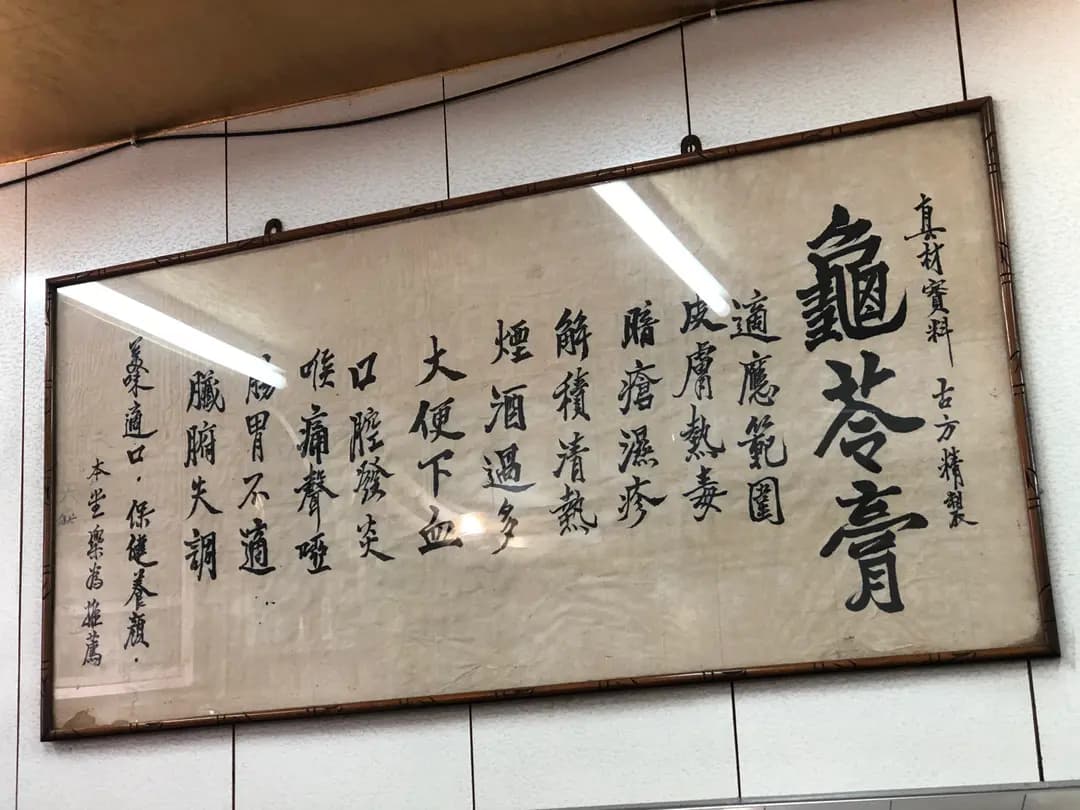 真材實料 古方精製
龜苓膏
適應範圍
皮膚熱毒
暗瘡濕疹
解積清熱
煙酒過多
大便下血
口腔發炎
喉痛聲啞
腸胃不適
臟腑失調
美味適口．保健養顏．
本堂樂為推薦